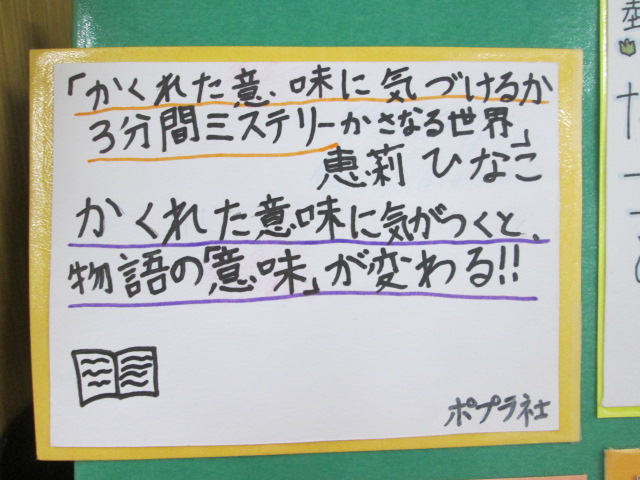 「かくれた意味に気づけるか
3分間ミステリーかさなる世界」
恵莉 ひなこ
かくれた意味に気がつくと、
物語の「意味」が変わる!!
ポプラ社